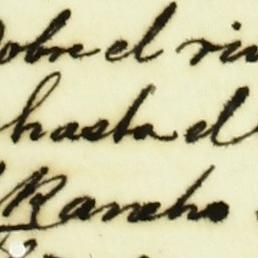 sobre el rin
hasta el
Rancho